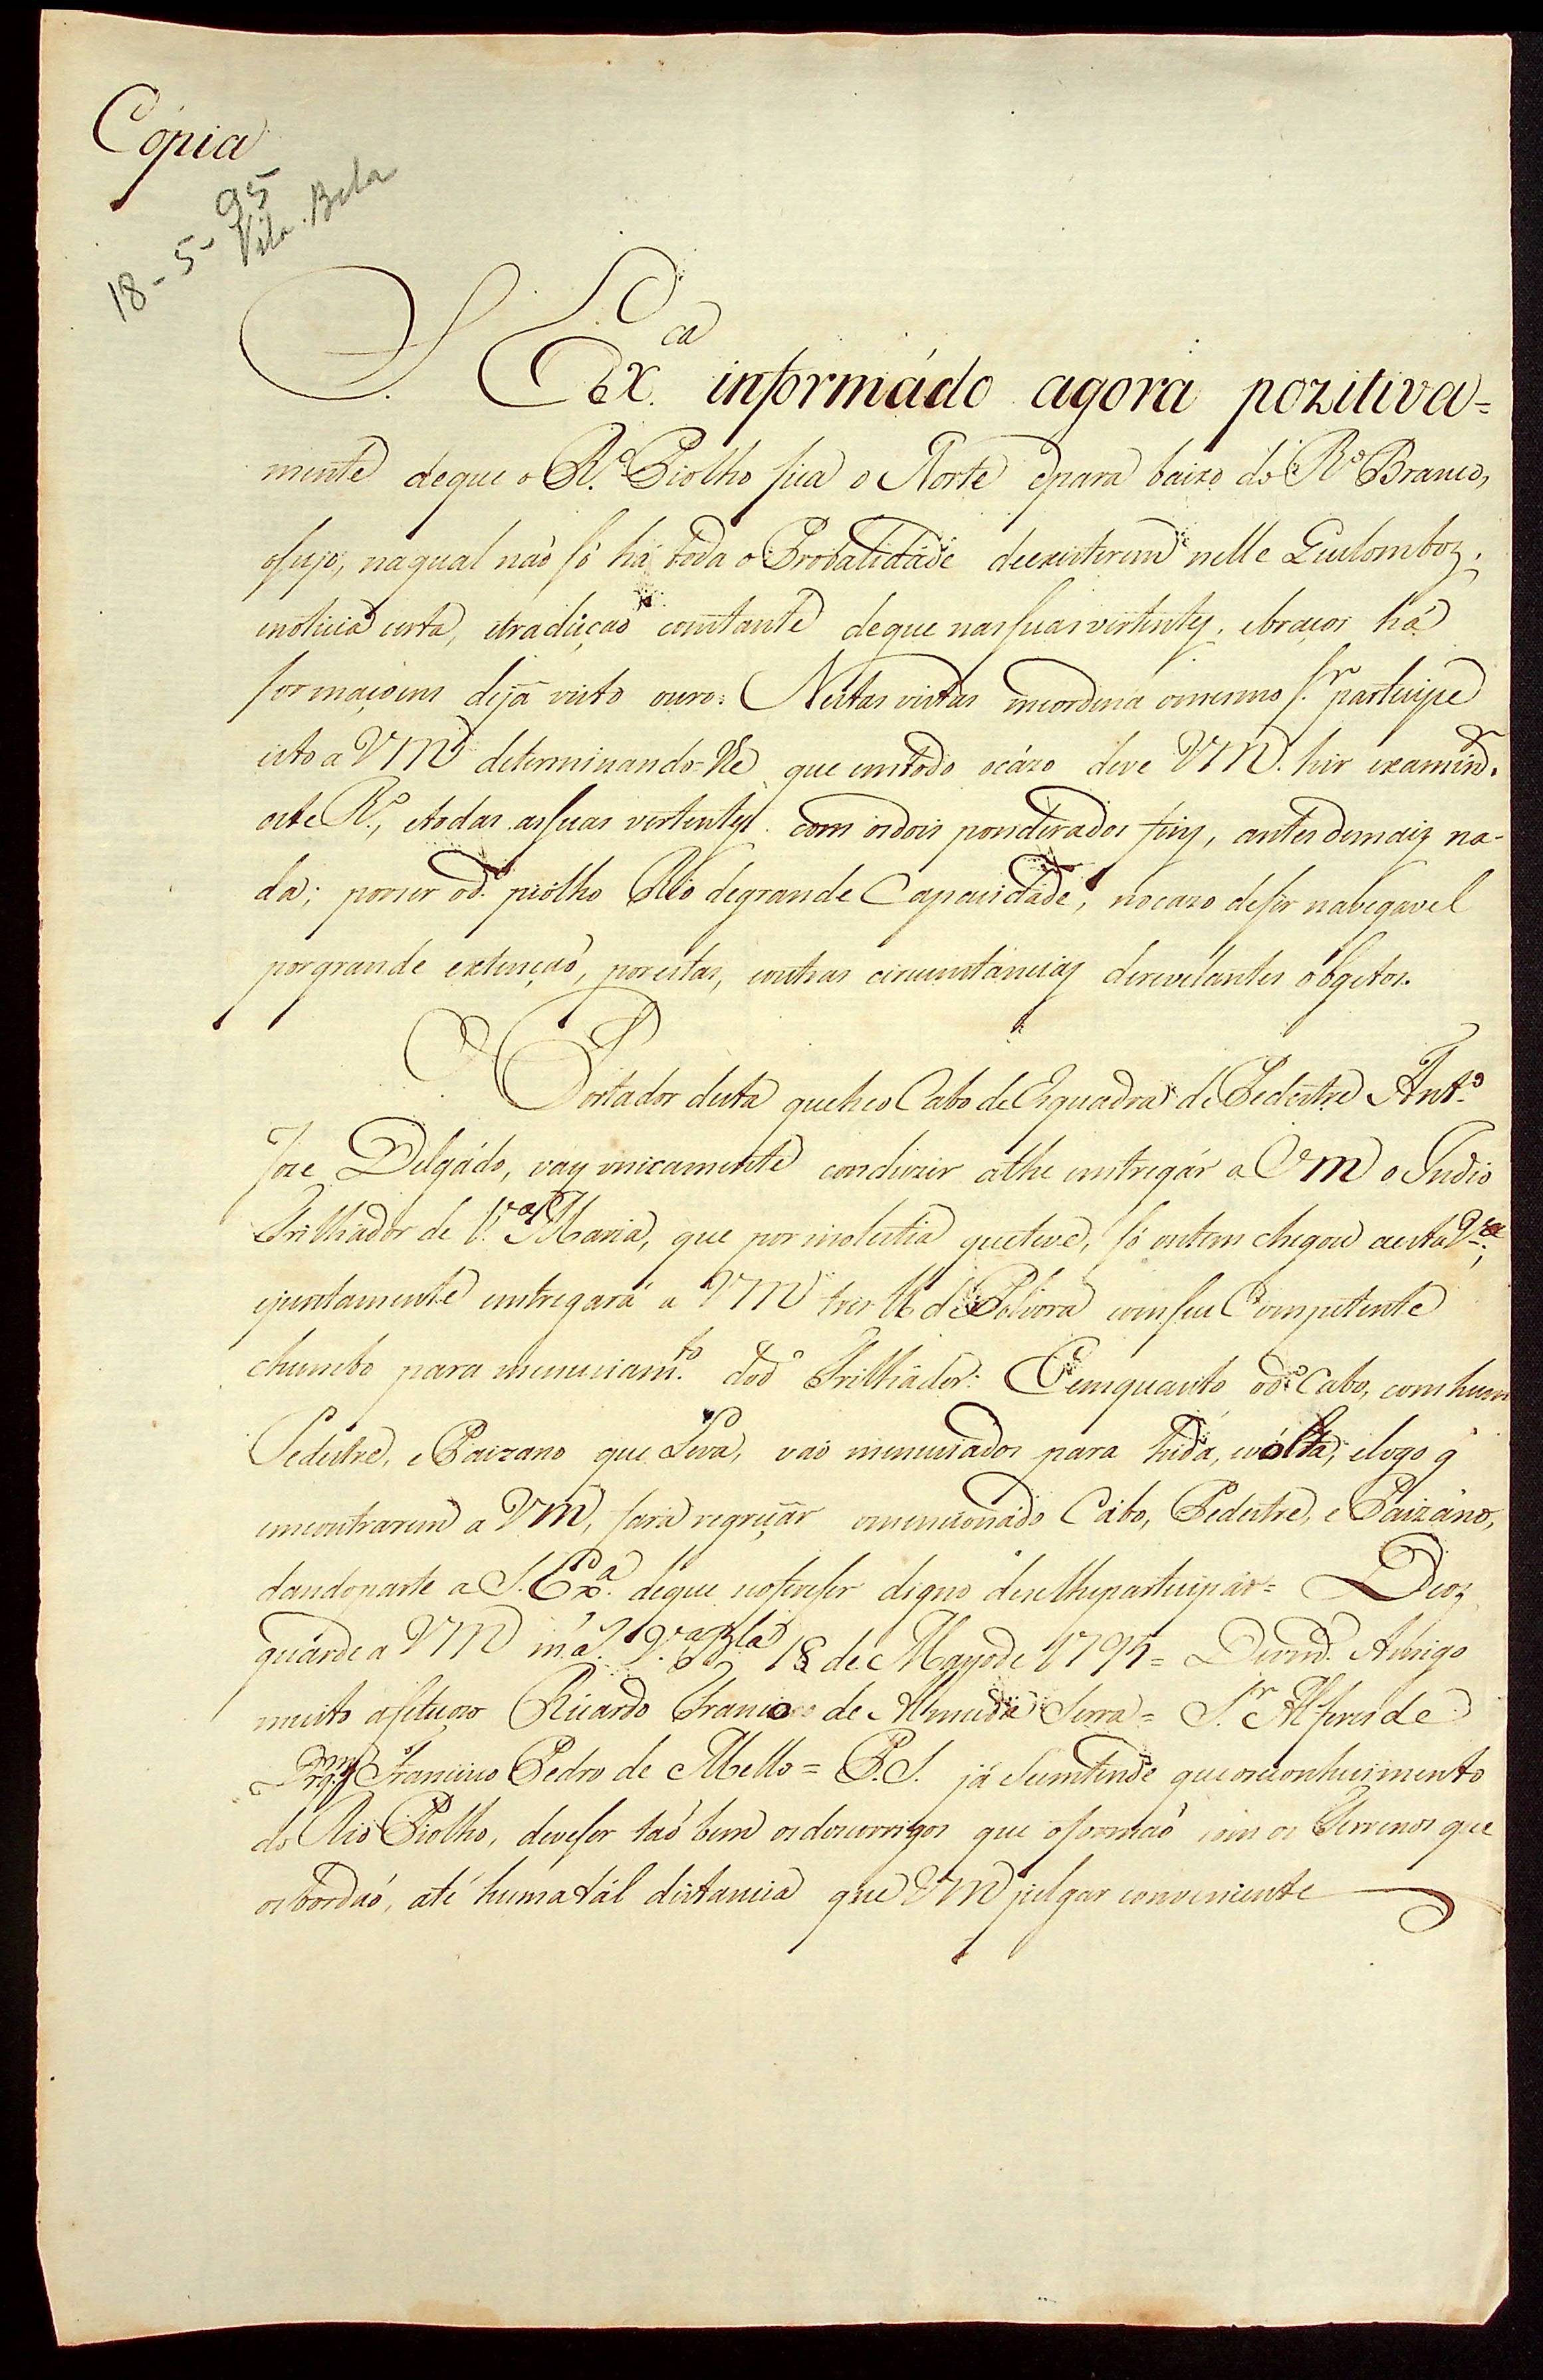 Cópia
18-5-95
Vila Bela
S. Ex.ca informádo agora pozitiva=
mente deque o R.º Piolho fica o Norte epara baixo do R.º Branco,
osujo, naqual naó só há toda o Probalidade deexisterem nelle Quilomboz;
enoticia certa, etradiçaó constante deque nas suas vertentes, ebraços há
formaçoens dejá visto ouro: Nestas vistas meordena omesmo S.r participe
isto a VM determinando-lhe que emtodo ocázo deve VM. hir examind.r
este R.º, etodas assuas vertentes com osdois ponderados fins, antes demaiz na-
da; porser od.º piolho Rio degrande Capacidade, nocazo deser nabegavel
porgrande extençaó, porestas, eoutras circunstancias derevelantes óbgetos.
O Portador desta queheo Cabo de Esquadra de Pedestre Ant.º
Joze Delgádo, vay unicamente conduzir athe entregár a VM o Indio
Trilhador de V.ª Maria, que por molestia queteve, só ontem chegou aesta V.ª;
ejuntamente entregará a VM tres lb de Polvora comseu Competente
chumbo para municiam.to dod.º Trilhador: Eemquanto od.º Cabo, comhum
Pedestre, e Paizano que Leva, vaó municiados para hida, evólta, elogo q̃
emcontrarem a VM, fará regreçar omencionado Cabo, Pedestre, e Paizáno,
dandoparte a S. Ex.ª deque nofor deser digno deselheparticipár= Deoz
guarde a VM m.s a.s V.ª B.la 18 de Mayo de 1795= Devm.d Amigo
muito afetuozo Ricardo Franco de Almeida Serra= S.r Alferes de
Drag.s Francisco Pedro de Mello= P.S. já seentende queoreconhecimento
do Rio Piolho, deveser taó bem osdoscorrigos que oformaó com os Terrenos que
osbordaó, até huma tál distancia que VM julgar conveniente